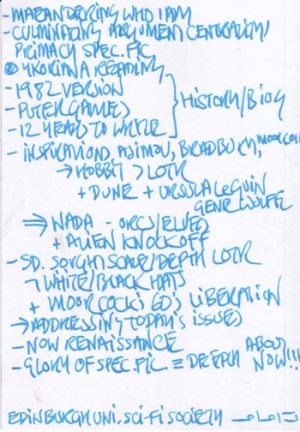 - MAEANDERING WHO I AM
- CULMINATING ARGUMENT CENTRALITY/
PRIMACY SPEC. FIC
READING
- 1982 VERSION
- PUTERGAMES
- 12 YEARS TO WRITE
HISTORY/BIOG
- INSPIRATIONS ASIMOV, BRADBURY, MOORCOCK
→ HOBBIT > LOTR
+ DUNE + URSULA LEGUIN
GENE WOLFE
⇒ NADA - ORCS/ELVES
+ ALIEN KNOCKOFF
- SO. SOUGHT SCALE/DEPTH LOTR
WHITE/BLACK HATS
+ MOORCOCK'S 60'S LIBERATION
→ ADDRESSING TODAY'S ISSUES
- NOW RENAISSANCE
- GLORY OF SPEC. FIC. = DEEPLY ABOUT NOW!!!
EDINBURGH UNI. SCI-FI SOCIETY